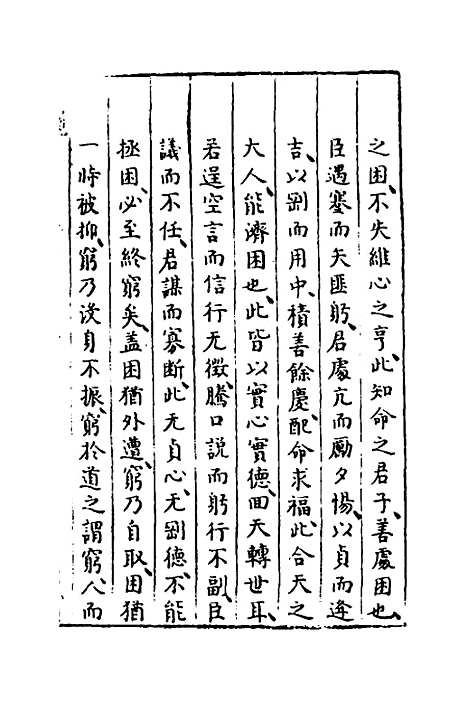 之困、不失維心之亨、此知命之君子、善處困也、
臣遇蹇而矢匪躬、君處亢而勵夕惕、以貞而逢
吉、以剛而用中、積善餘慶、配命求福、此合天之
大人、能濟困也、此皆以實心實德、回天轉世耳、
若逞空言而信行无徵、騰口説而躬行不副、臣
議而不任、君謀而寡斷、此无貞心、无剛德、不能
拯困、必至終窮矣、盖困猶外遭、窮乃自取、困猶
一時被抑、窮乃没身不振、窮於道之謂窮、人而